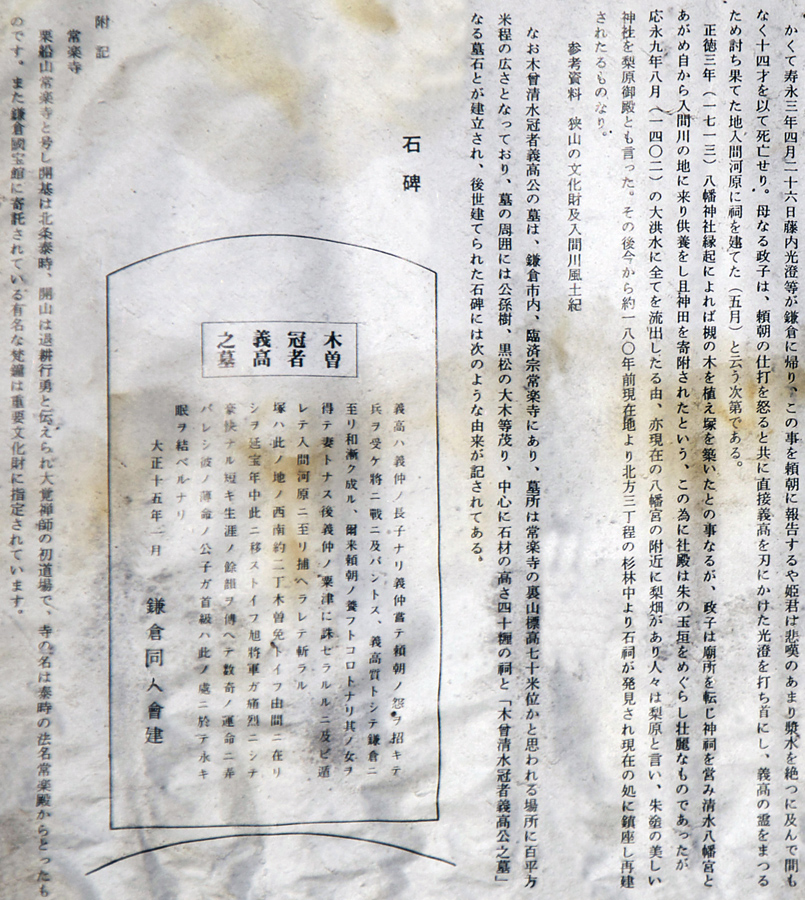 かくて寿永三年四月二十六日藤内光澄等が鎌倉に帰り、この事を頼朝に報告するや姫君は悲嘆のあまり漿水を絶つに及んで間も
なく十四才を以て死亡せり。母なる政子は、頼朝の仕打を怒ると共に直接義高を刃にかけた光澄を打ち首にし、義高の霊をまつる
ため討ち果てた地入間河原に祠を建てた（五月）と云う次第である。
正徳三年（一七一三）八幡神社縁起によれば槻の木を植え塚を築いたとの事なるが、政子は廟所を転じ神祠を営み清水八幡宮と
あがめ自から入間川の地に来り供養をし且神田を寄附されたという、この為に社殿は朱の玉垣をめぐらし壮麗なものであったが
応永九年八月（一四〇二）の大洪水に全てを流出したる由、亦現在の八幡宮の附近に梨畑があり人々は梨原と言い、朱塗の美しい
神社を梨原御殿とも言った。その後今から約一八〇年前現在地より北方三丁程の杉林中より石祠が発見され現在の処に鎮座し再建
されたるものなり。
参考資料 狭山の文化財及入間川風土紀
なお木曾清水冠者義高公の墓は、鎌倉市内、臨済宗常楽寺にあり、墓所は常楽寺の裏山標高七十米位かと思われる場所に百平方
米程の広さとなっており、墓の周囲には公孫樹、黒松の大木等茂り、中心に石材の高さ四十糎の祠と「木曾清水冠者義高公之墓」
なる墓石とが建立され、後世建てられた石碑には次のような由来が記されてある。
石碑
木曽
冠者
義高
之墓
義高ハ義仲ノ長子ナリ義仲嘗テ頼朝ノ怨ヲ招キテ
兵ヲ受ケ將ニ戰ニ及バントス、義高質トシテ鎌倉ニ
至リ和漸ク成ル、爾来頼朝ノ養フトコロトナリ其ノ女ヲ
得テ妻トナス後義仲ノ粟津ニ誅セラルルニ及ビ遁
レテ入間河原ニ至リ捕ヘラレテ斬ラル
塚ハ此ノ地ノ西南約二丁木曽免トイフ田間ニ在リ
シヲ延宝年中此ニ移ストイフ旭將軍ガ痛烈ニシテ
豪快ナル短キ生涯ノ餘韻ヲ傳ヘテ数奇ノ運命ニ弄
バレシ彼ノ薄命ノ公子ガ首級ハ此ノ處ニ於テ永キ
眠ヲ結ベルナリ
大正十五年二月 鎌倉同人會建
附記
常楽寺
粟船山常楽寺と号し開基は北条泰時、開山は退耕行勇と伝えられ大覚禅師の初道場で、寺の名は泰時の法名常楽殿からとったも
のです。また鎌倉國宝館に寄託されている有名な梵鐘は重要文化財に指定されています。